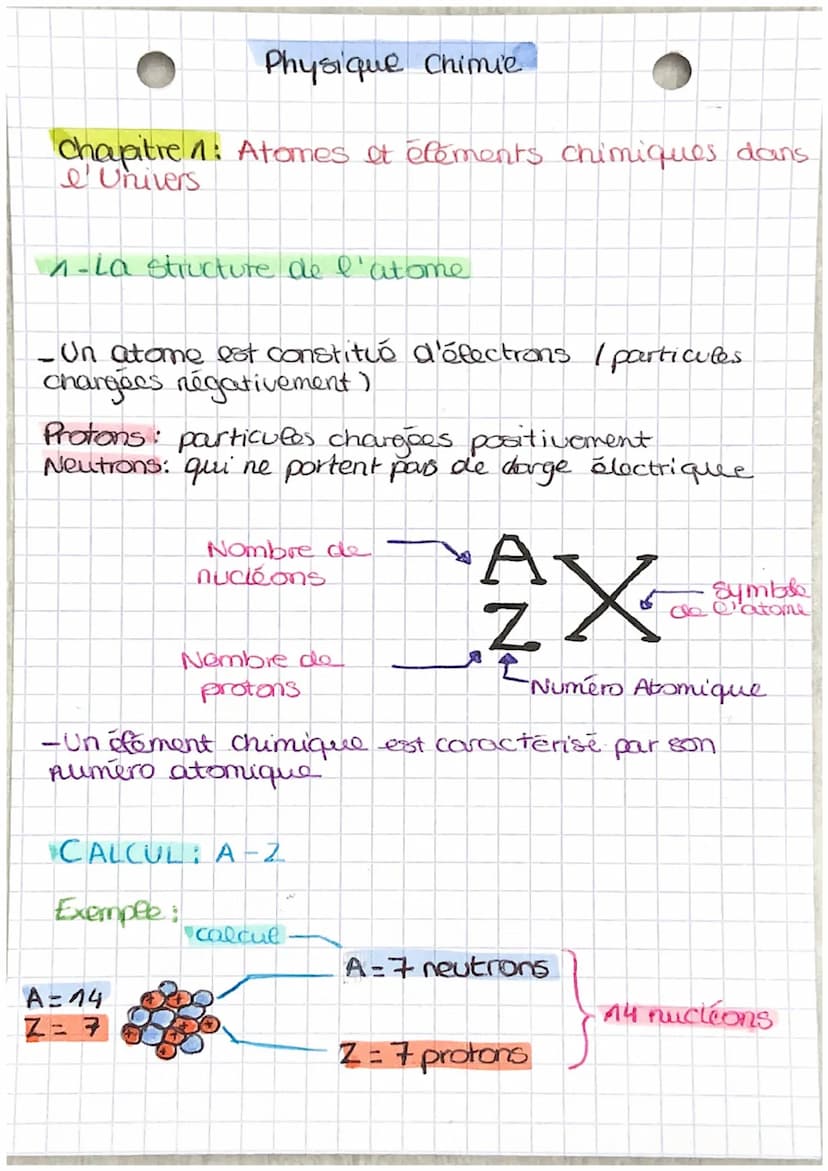 Physique Chimie
Chapitre 1: Atomes et éléments chimiques dans
l'Univers
1-La structure de l'atome
-Un atome est constitué d'électrons (particules
chargées négativement)
Protons: particules chargées positivement
Neutrons: qui ne portent pas de darge électrique
Nombre de
nucléons
A
X
Symbole
de l'atome
Z
Nombre de
protons
Numéro Atomique
-Un élément chimique est caractérisé par son
numéro atomique
CALCUL: A-Z
Exemple:
calcul
A=7 neutrons
A=14
Z=7
14 nucléons
Z=7 protons